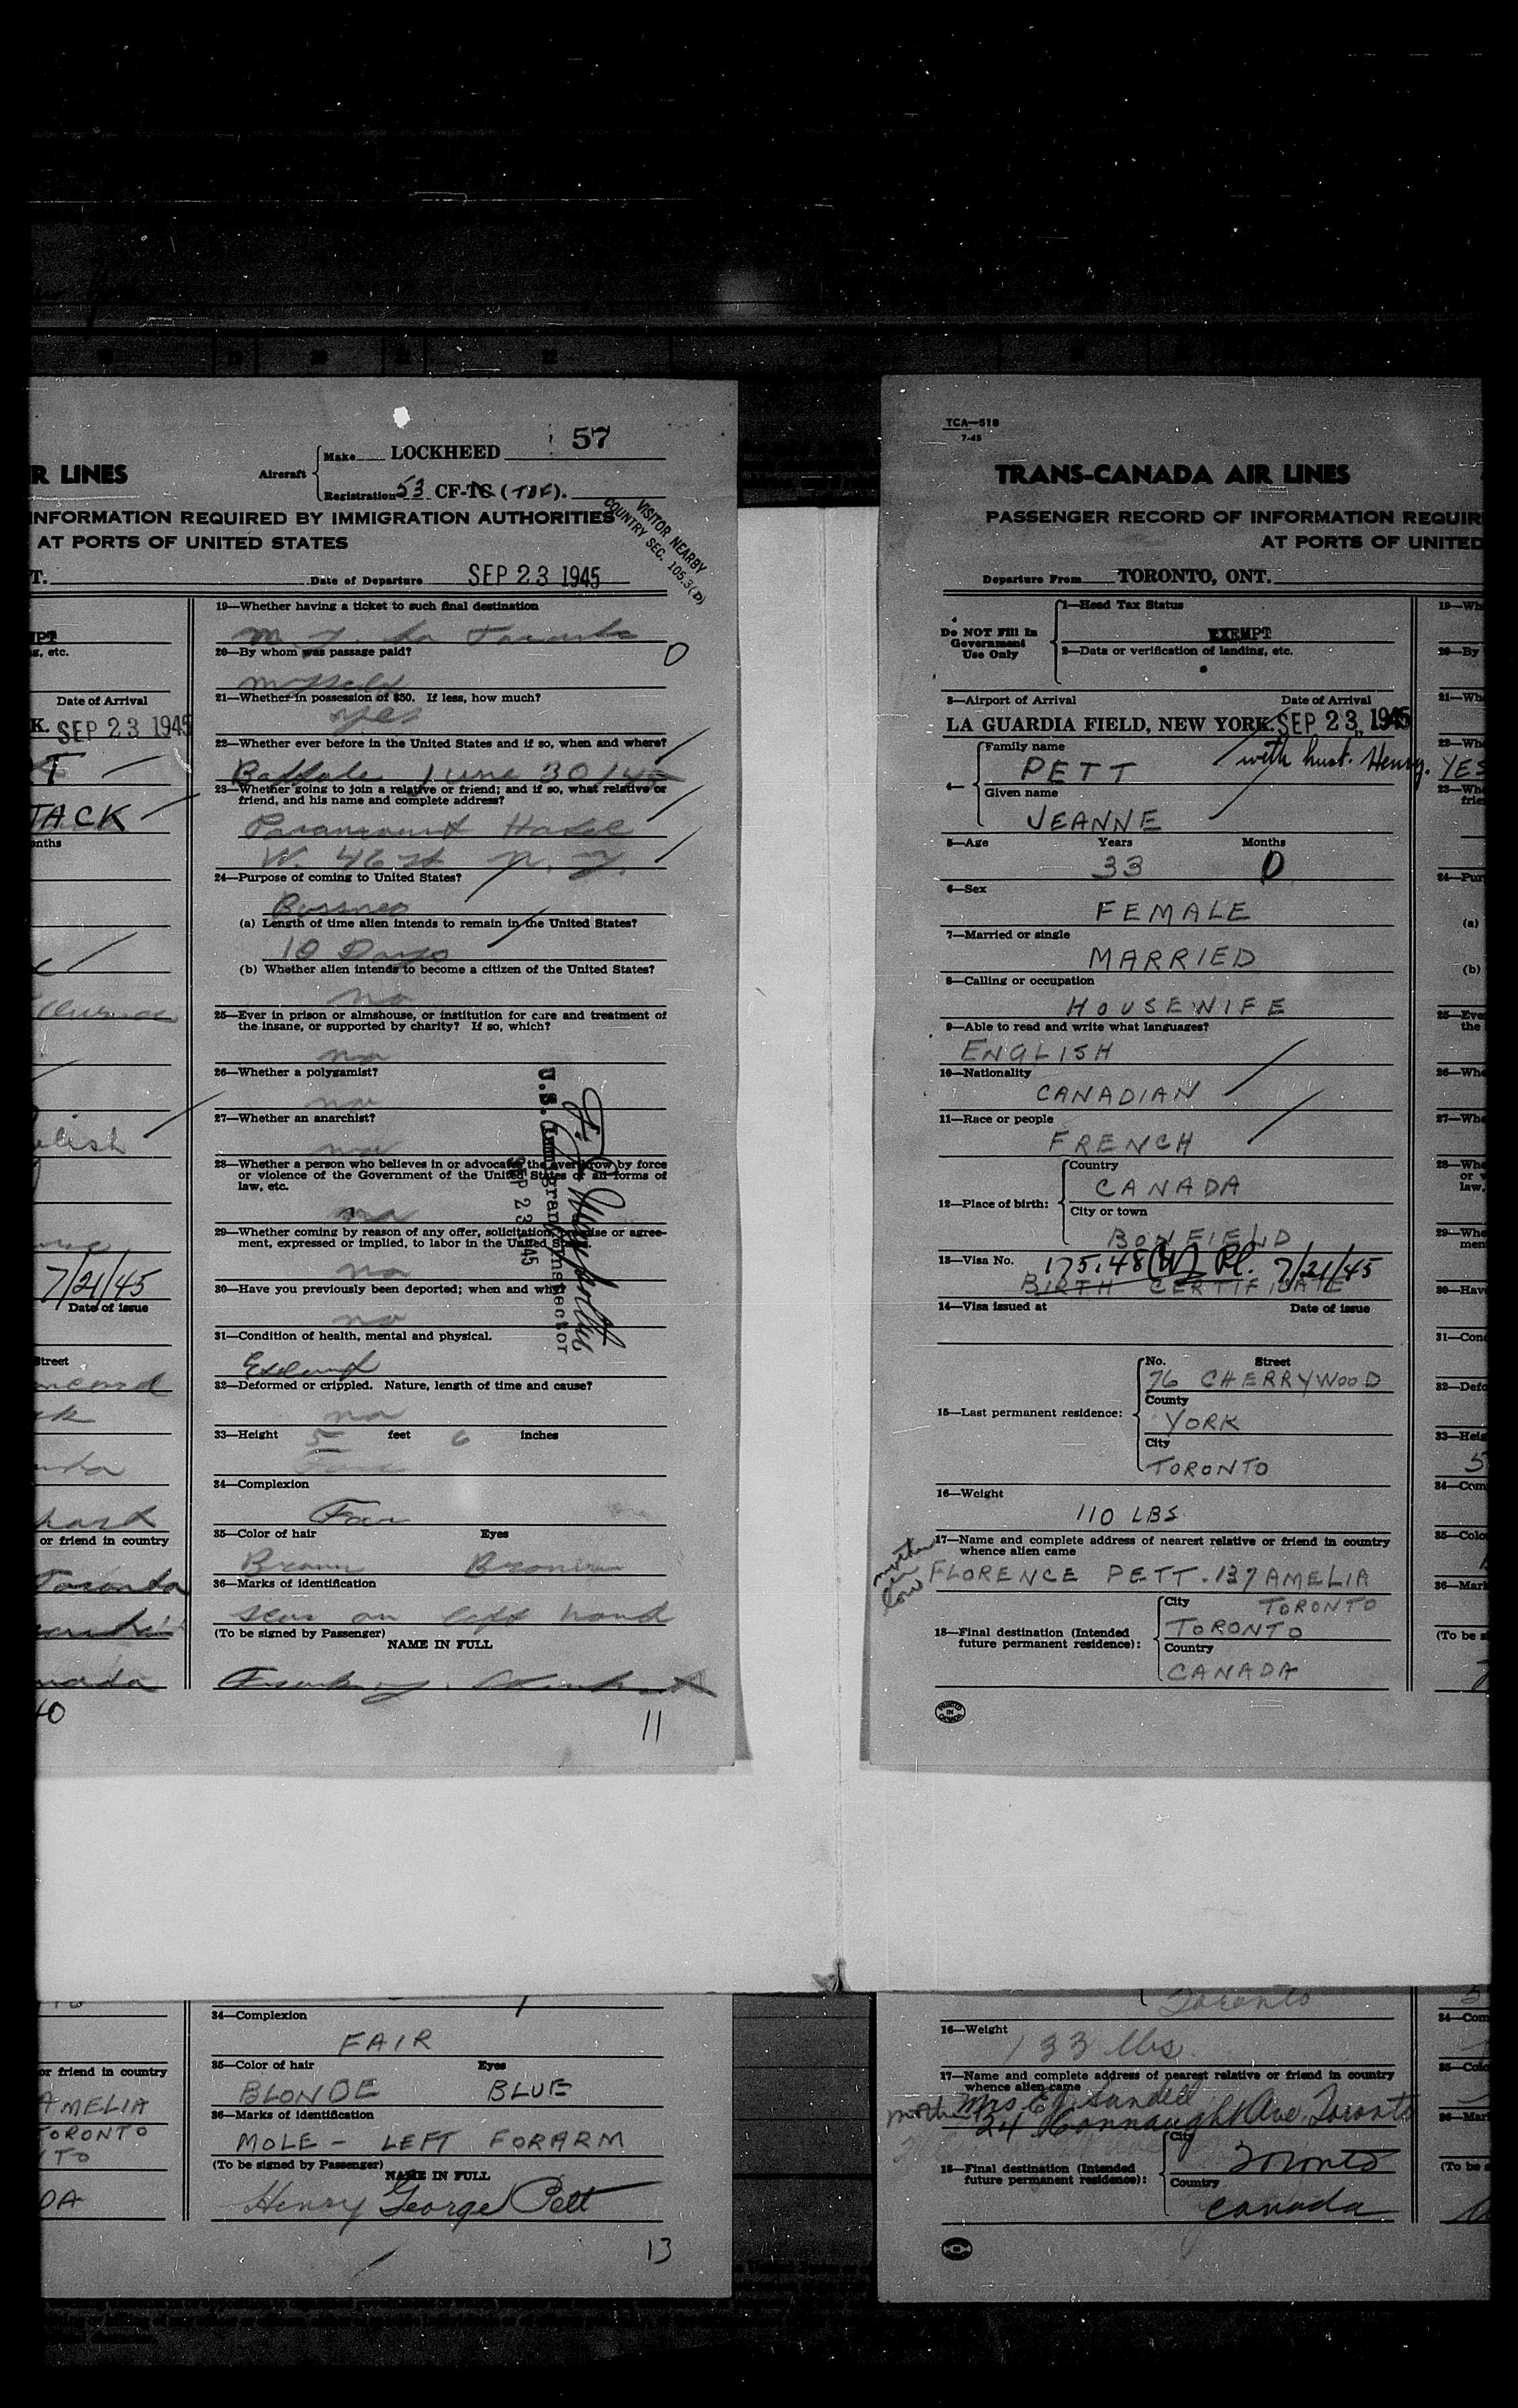 57
R LINES
Aircraft
Make LOCKHEED
Registration 53 CF-TC (TDF).
INFORMATION REQUIRED BY IMMIGRATION AUTHORITIES
AT PORTS OF UNITED STATES
VISITOR NEARBY
COUNTRY SEC. 105.3(D)
T.
Date of Departure SEP 23 1945
g, etc.
Date of Arrival
K. SEP 23 1945
T
JACK
onths
lish
7/21/45
Date of issue
Street
or friend in country
Toronto
nada
40
19—Whether having a ticket to such final destination
Toronto
20—By whom was passage paid?
O
myself
21—Whether in possession of $50. If less, how much?
yes
22—Whether ever before in the United States and if so, when and where?
Buffalo June 30/45
23—Whether going to join a relative or friend; and if so, what relative or
friend, and his name and complete address?
Paramount Hotel
W. 46 st N. Y.
24—Purpose of coming to United States?
Business
(a) Length of time alien intends to remain in the United States?
10 Days
(b) Whether alien intends to become a citizen of the United States?
no
25—Ever in prison or almshouse, or institution for care and treatment of
the insane, or supported by charity? If so, which?
no
26—Whether a polygamist?
no
27—Whether an anarchist?
no
28—Whether a person who believes in or advocates the overthrow by force
or violence of the Government of the United States or all forms of
law, etc.
no
29—Whether coming by reason of any offer, solicitation, promise or agree-
ment, expressed or implied, to labor in the United States
no
30—Have you previously been deported; when and why?
no
U.S. Immigrant Inspector
SEP 23 1945
31—Condition of health, mental and physical.
32—Deformed or crippled. Nature, length of time and cause?
no
33—Height 5 feet 6 inches
34—Complexion
Fair
35—Color of hair Eyes
Brown Brown
36—Marks of identification
scar on left hand
(To be signed by Passenger)
NAME IN FULL
11
TCA—518
7-45
TRANS-CANADA AIR LINES
PASSENGER RECORD OF INFORMATION REQUIR
AT PORTS OF UNITED
Departure From TORONTO, ONT.
Do NOT Fill In
Government
Use Only
1—Head Tax Status
EXEMPT
2—Data or verification of landing, etc.
3—Airport of Arrival Date of Arrival
LA GUARDIA FIELD, NEW YORK. SEP 23, 1945
4—
Family name
PETT
with husb. Henry.
Given name
JEANNE
5—Age Years Months
33 0
6—Sex
FEMALE
7—Married or single
MARRIED
8—Calling or occupation
HOUSEWIFE
9—Able to read and write what languages?
ENGLISH
10—Nationality
CANADIAN
11—Race or people
FRENCH
12—Place of birth:
Country
CANADA
City or town
BONFIELD
13—Visa No. 175.48 (W) Pl. 7/21/45
BIRTH CERTIFICATE
14—Visa issued at Date of issue
15—Last permanent residence:
No. Street
76 CHERRYWOOD
County
YORK
City
TORONTO
16—Weight
110 LBS
17—Name and complete address of nearest relative or friend in country
whence alien came
mother in law
FLORENCE PETT. 137 AMELIA
TORONTO
18—Final destination (Intended
future permanent residence):
City
TORONTO
Country
CANADA
PRINTED IN CANADA
19—Wh
20—By
21—Wh
22—Wh
YES
23—Wh
frie
24—Pur
(a)
(b)
25—Eve
the
26—Whe
27—Whe
28—Whe
or v
law,
29—Whe
men
30—Hav
31—Con
32—Defo
33—Heig
5
34—Com
35—Colo
36—Mark
(To be s
or friend in country
AMELIA
TORONTO
TO
DA
34—Complexion
FAIR
35—Color of hair Eyes
BLONDE BLUE
36—Marks of identification
MOLE - LEFT FORARM
(To be signed by Passenger)
NAME IN FULL
Henry George Pett
13
Toronto
16—Weight
133 lbs.
17—Name and complete address of nearest relative or friend in country
whence alien came
mother Mrs E J Sandell
24 Connaught Ave. Toronto
18—Final destination (Intended
future permanent residence):
City
Toronto
Country
Canada
34—Com
35—Colo
36—Mar
(To be s